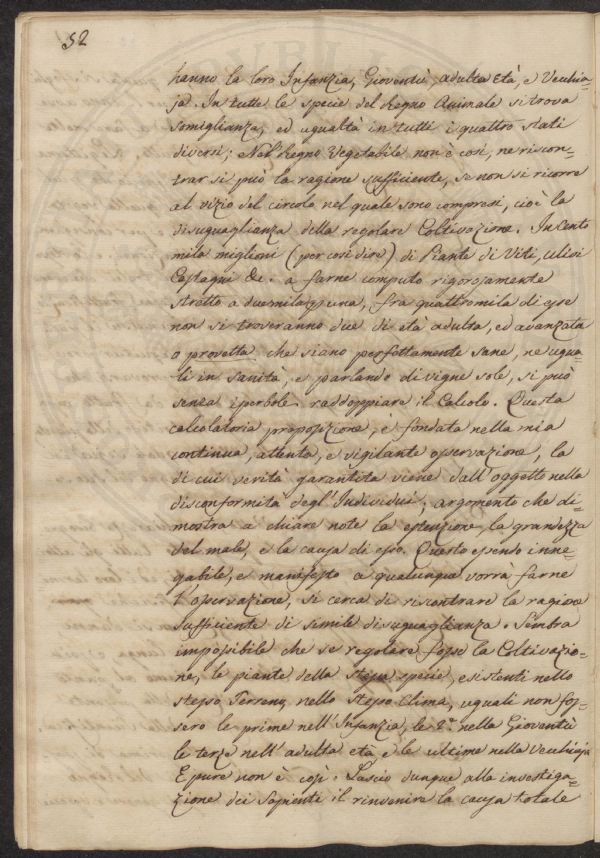 52
hanno la loro Infanzia, Gioventù, adulta Età, e Vecchia-
ja. In tutte le specie del Regno Animale si trova
somiglianza, ed ugualtà in tutti i quattro stati
diversi; Nel Regno Vegetabile non è così, ne riscon-
trar si può la ragione sufficiente, se non si ricorre
al vizio del circolo nel quale sono compresi, cioè la
disuguaglianza della regolare Coltivazione. In Cento
mila miglioni (per così dire) di Piante di Viti, ulivi
Castagni &c. a farne computo rigorosamente
stretto a duemila per una, fra quattromila di esse
non si troveranno due di età adulta, ed avanzata
o provetta che siano perfettamente sane, ne ugua-
li in sanità, e parlando di vigne sole, si può
senza iperbole raddoppiare il Calcolo. Questa
calcolatoria proposizione, è fondata nella mia
continua, attenta, e vigilante osservazione, la
di cui verità garantita viene dall'oggetto nella
disconformità degl'Individui, argomento che di-
mostra a chiare note la estenzione, la grandezza
del male, e la causa di esso. Questo essendo inne-
gabile, e manifesto a qualunque vorrà farne
l'osservazione, si cerca di riscontrare la ragione
sufficiente di simile disuguaglianza. Sembra
impossibile che se regolare fosse la Coltivazio-
ne, le piante della stessa specie, esistenti nello
stesso Terreno, nello stesso Clima, uguali non fos-
sero le prime nell'Infanzia, le 2.e nella Gioventù
le terze nell'adulta età e le ultime nella Vecchieja
E pure non è così. Lascio dunque alla investiga-
zione dei Sapienti il rinvenire la causa totale